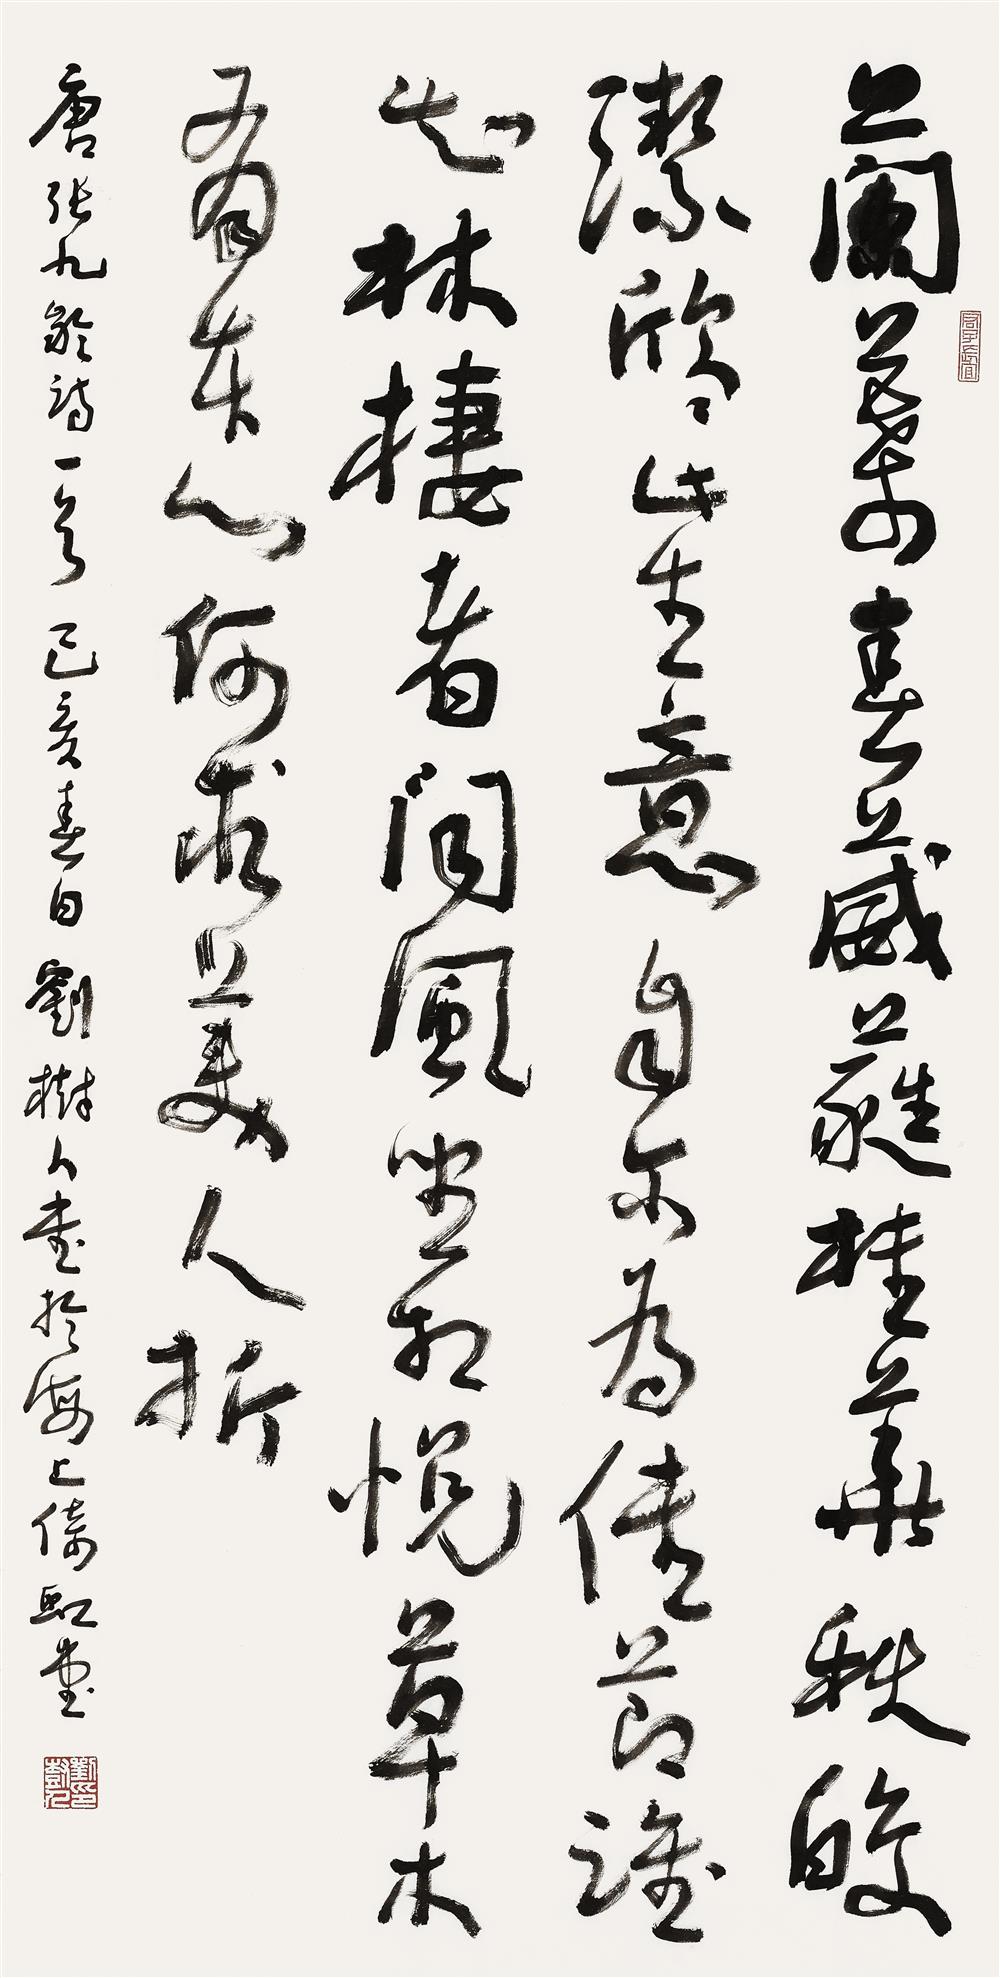 蘭葉春葳蕤桂華秋皎
潔欣〻此生意自尔為佳節誰
知林棲者聞風坐相悅草木
有本心何求美人折
唐張九齡詩一首 己亥春日 劉樹人書於海上倚虹堂
劉印樹人